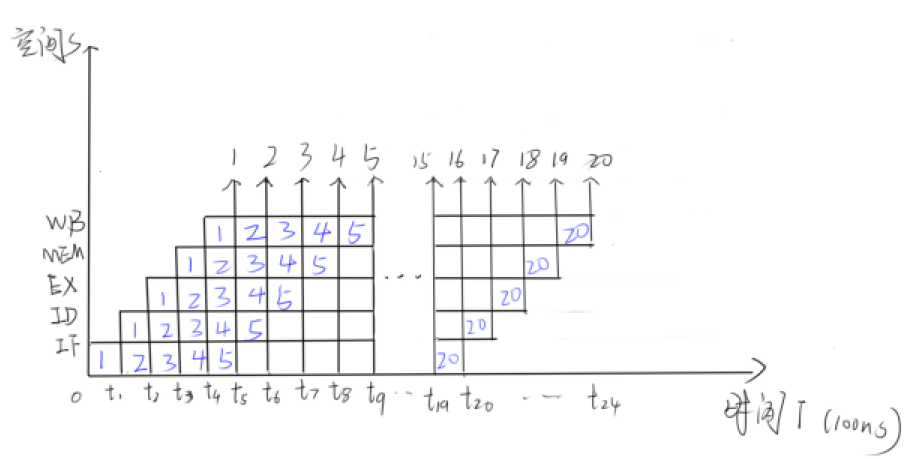 空间S
1 2 3 4 5 15 16 17 18 19 20
WB 1 2 3 4 5 20
MEM 1 2 3 4 5 20
EX 1 2 3 4 5 ... 20
ID 1 2 3 4 5 20
IF 1 2 3 4 5 20
0 t₁ t₂ t₃ t₄ t₅ t₆ t₇ t₈ t₉ ... t₁₉ t₂₀ ... t₂₄
时间T (100ns)